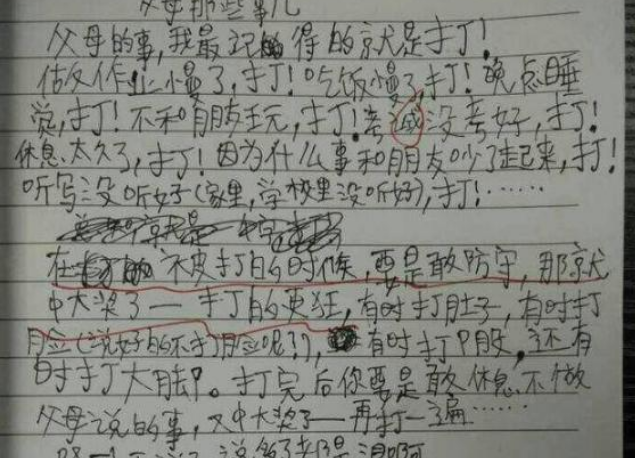 父母那些事儿
父母的事,我最记得的就是打!
做作业慢了,打!吃饭慢了,打!晚点睡
觉,打!不和朋友玩,打!考试没考好,打!
休息太久了,打!因为什么事和朋友吵了起来,打!
听写没听好(家里,学校里没听好),打!……
在被打的时候,要是敢防守,那就
中大奖了——打的更狂,有时打肚子,有时打
脸(说好的不打脸呢?),有时打屁股,还有
时打大脚。打完后你要是敢休息不做
父母说的事,又中大奖了——再打一遍……